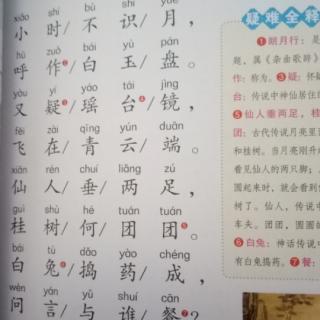 xiǎo shí bù shí yuè
小 时/ 不 识/ 月，
hū zuò bái yù pán
呼 作❷/ 白 玉/ 盘。
yòu yí yáo tái jìng
又 疑❸/ 瑶 台❹/ 镜，
fēi zài qīng yún duān
飞 在/ 青 云/ 端。
xiān rén chuí liǎng zú
仙 人/ 垂/ 两 足，
guì shù hé tuán tuán
桂 树/ 何/ 团 团❺。
bái tù dǎo yào chéng
白 兔❻/ 捣 药/ 成，
wèn yán yǔ shuí cān
问 言/ 与 谁/ 餐❼？
疑难全释
❶朗月行：
题，属《杂曲歌辞》
作：称为。❸疑：怀疑
台：传说中神仙居住的
❺仙人垂两足，桂
团：古代传说月亮里
和桂树。当月亮刚升
看见仙人的两只脚，
圆起来时，就会看到
树了。仙人，传说中
车夫。团团，圆圆的
❻白兔：神话传说中
有白兔捣药。❼餐：